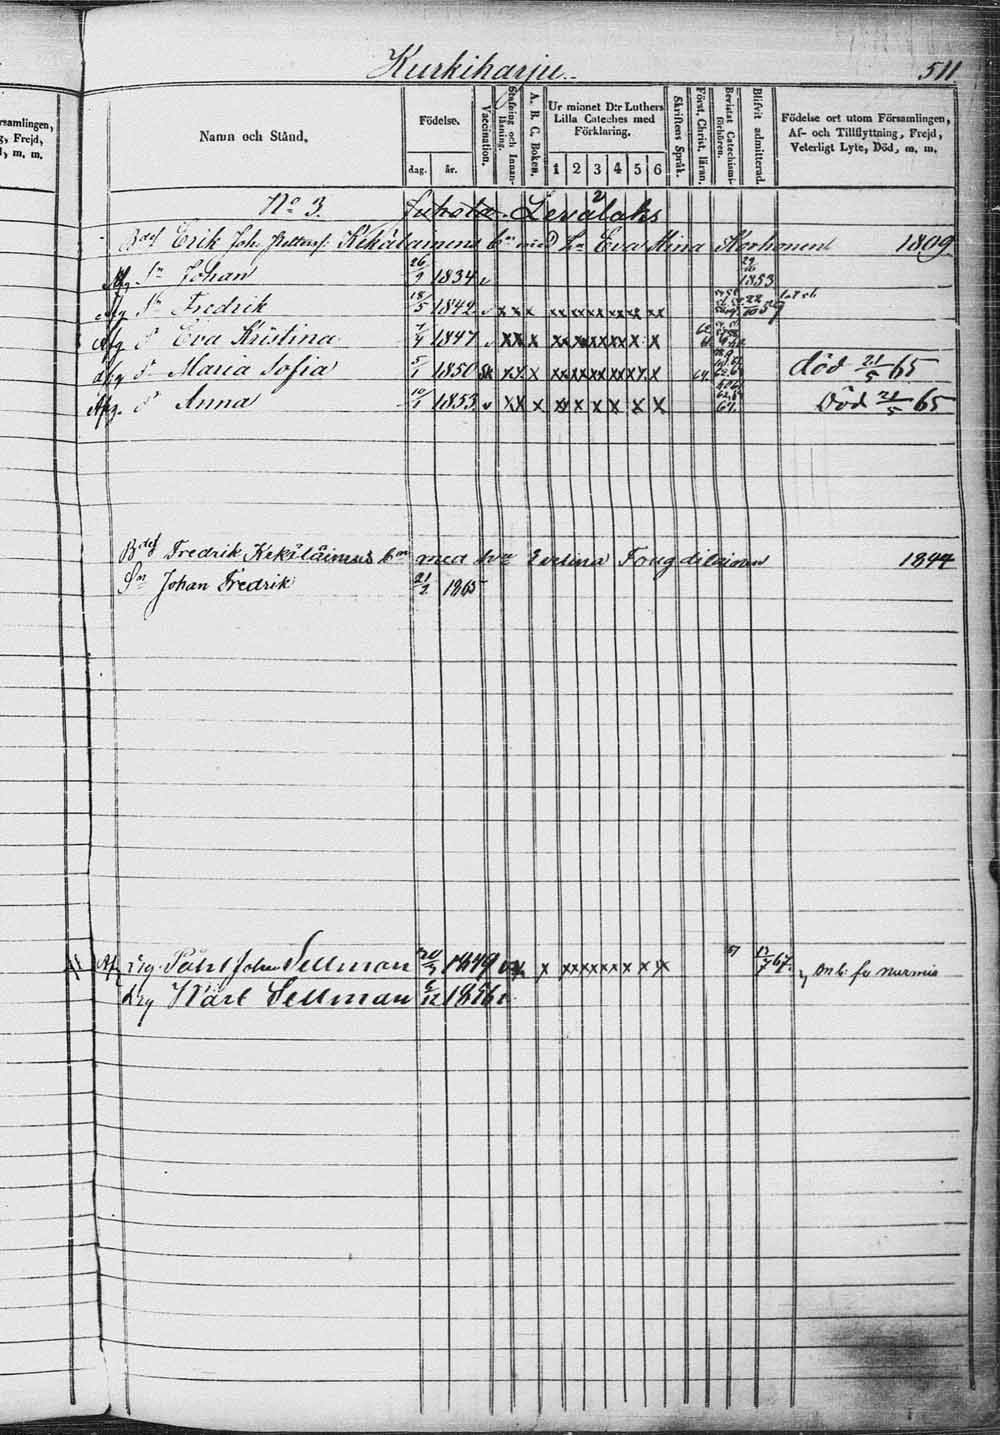 Kurkiharju. 511
rsamlingen,
g, Frejd,
d, m. m.
Namn och Stånd.
Födelse.
dag. år.
Vaccination.
Stafning och Innan-läsning.
A. B. C. Boken.
Ur minnet D:r Luthers
Lilla Cateches med
Förklaring.
1 2 3 4 5 6
Skriftens Språk.
Först. Christ. läran.
Bevistat Catechismi-förhören.
Blifvit admitterad.
Födelse ort utom Församlingen,
Af- och Tillflyttning, Frejd,
Veterligt Lyte, Död, m. m.
No 3. Levälaks 2
Erik Joh. Kekäläinens bn med Hu Eva Stina Korhonen 1809
Afg. Sn Johan 26/9 1834 v 1853
Afg Sn Fredrik 18/5 1842 v x x x xx xx xx xx xx xx
Afg D Eva Kristina 7/4 1847 v x x x xx xx xx xx x x
Afg Dr Maria Sofia 5/1 1850 x x x xx xx xx xx x x x död 21/5 65
Afg. D Anna 10/1 1853 v x x x xx x x x x x Död 21/5 65
Fredrik Kekäläinens bn med hu Evelina 1844
Sn Johan Fredrik 21/2 1865
Påhl Johan Sellman 20/3 1849 x xx xx xx x x x 57 12/7 67 Nurmis
Karl Sellman 6/12 1856